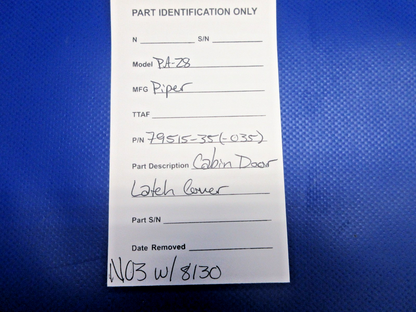 PART IDENTIFICATION ONLY
N ________ S/N ________
Model PA-28
MFG Piper
TTAF ________
P/N 79515-35(-035)
Part Description Cabin Door
Latch Cover
Part S/N ________
Date Removed ________
N03 w/8130